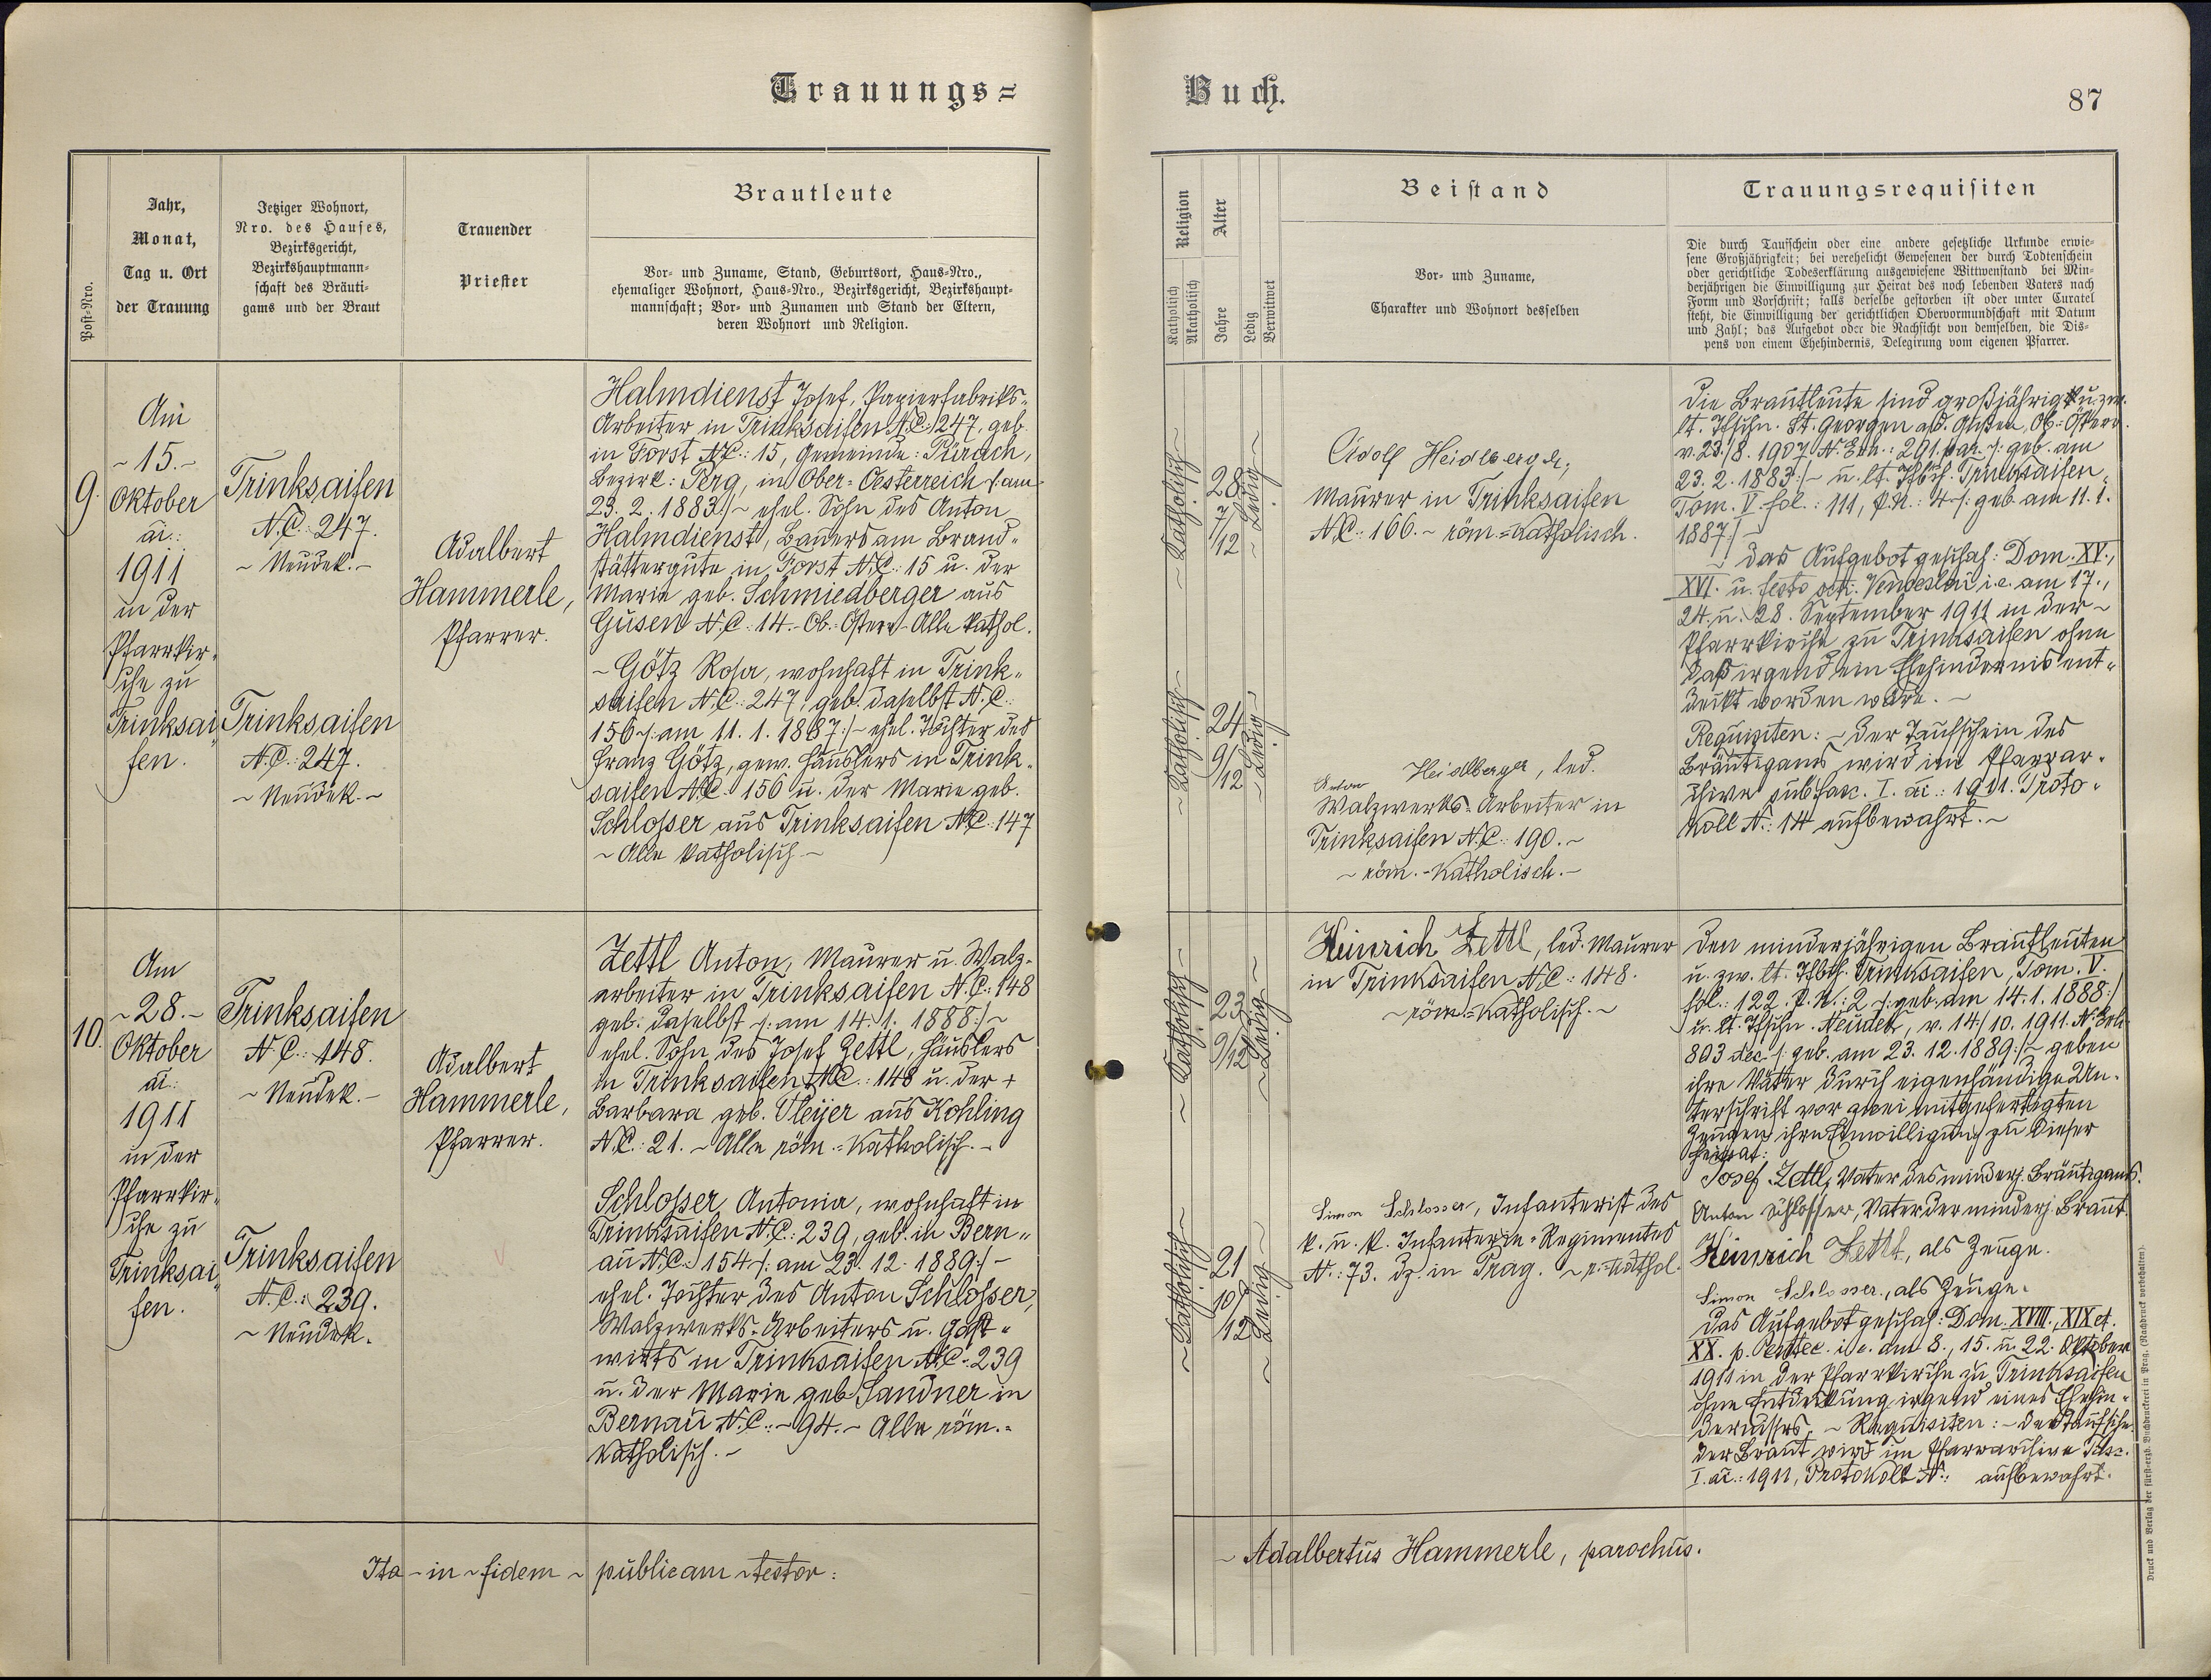 Trauungs=
Buch.
87
Post=Nro.
Jahr,
Monat,
Tag u. Ort
der Trauung
Jetziger Wohnort,
Nro. des Hauses,
Bezirksgericht,
Bezirkshauptmann=
schaft des Bräuti=
gams und der Braut
Trauender
Priester
Brautleute
Vor= und Zuname, Stand, Geburtsort, Haus=Nro.,
ehemaliger Wohnort, Haus=Nro., Bezirksgericht, Bezirkshaupt=
mannschaft; Vor= und Zunamen und Stand der Eltern,
deren Wohnort und Religion.
Religion
Katholisch
Akatholisch
Alter
Jahre
Ledig
Verwitwet
Beistand
Vor= und Zuname,
Charakter und Wohnort desselben
Trauungsrequisiten
Die durch Taufschein oder eine andere gesetzliche Urkunde erwie=
sene Großjährigkeit; bei verehelicht Gewesenen der durch Todtenschein
oder gerichtliche Todeserklärung ausgewiesene Wittwenstand bei Min=
derjährigen die Einwilligung zur Heirat des noch lebenden Vaters nach
Form und Vorschrift; falls derselbe gestorben ist oder unter Curatel
steht, die Einwilligung der gerichtlichen Obervormundschaft mit Datum
und Zahl; das Aufgebot oder die Nachsicht von demselben, die Dis=
pens von einem Ehehindernis, Delegirung vom eigenen Pfarrer.
9.
Am
~ 15. ~
Oktober
ai:
1911
in der
Pfarrkir=
che zu
Trinksai=
fen.
Trinksaifen
N.C.: 247.
~ Neudek. ~
Trinksaifen
N.C.: 247.
~ Neudek. ~
Adalbert
Hammerle,
Pfarrer.
Halmdienst Josef, Papierfabriks=
Arbeiter in Trinksaifen N.C. 247, geb.
in Forst N.C.: 15, Gemeinde: Pürach,
Bezirk: Perg, in Ober=Oesterreich /: am
23. 2. 1883 :/ ~ ehel. Sohn des Anton
Halmdienst, Bauers am Brand=
stättergute in Forst N.C.: 15 u. der
Marie geb. Schmiedberger aus
Gusen N.C.: 14. ~ Ob.=Österr. ~ Alle kathol.
~ Götz Rosa, wohnhaft in Trink=
saifen N.C.: 247, geb. daselbst N.C.:
156 /: am 11. 1. 1887 :/ ~ ehel. Tochter des
Franz Götz, gew. Häuslers in Trink=
saifen N.C. 156 u. der Marie geb.
Schlosser aus Trinksaifen N.C.: 147
~ Alle katholisch ~
~ Katholisch ~
28
7/12
~ Ledig ~
~ Katholisch ~
24
9/12
~ Ledig ~
Adolf Heidlberger,
Maurer in Trinksaifen
N.C.: 166. ~ röm.=katholisch.
Anton Heidlberger, led.
Walzwerks=Arbeiter in
Trinksaifen N.C.: 190. ~
~ röm.=katholisch. ~
Die Brautleute sind großjährig u. zw.
lt. Tfschn. St. Georgen a/d. Gusen, Ob.=Österr.
v. 23./8. 1907 N. Exh.: 291 par. /: geb. am
23. 2. 1883 :/ ~ u. lt. Tfbch. Trinksaifen,
Tom. V. fol.: 111, P.N.: 4 /: geb. am 11. 1.
1887 :/ ~
~ Das Aufgebot geschah: Dom. XV.,
XVI. u. festo scti. Venceslai i.e. am 17.,
24. u. 28. September 1911 in der ~
Pfarrkirche zu Trinksaifen ohne
daß irgend ein Ehehindernis ent=
deckt worden wäre. ~
Requisiten: ~ Der Taufschein des
Bräutigams wird im Pfarrar=
chive sub fasc. I. ai.: 1911. Proto=
koll N.: 14 aufbewahrt. ~
10.
Am
~ 28. ~
Oktober
ai:
1911
in der
Pfarrkir=
che zu
Trinksai=
fen.
Trinksaifen
N.C.: 148.
~ Neudek. ~
Trinksaifen
N.C.: 239.
~ Neudek.
Adalbert
Hammerle,
Pfarrer.
Zettl Anton, Maurer u. Walz=
arbeiter in Trinksaifen N.C.: 148
geb. daselbst /: am 14. 1. 1888 :/ ~
ehel. Sohn des Josef Zettl, Häuslers
in Trinksaifen N.C.: 148 u. der +
Barbara geb. Pleyer aus Kohling
N.C.: 21. ~ Alle röm.=katholisch. ~
Schlosser Antonia, wohnhaft in
Trinksaifen N.C.: 239, geb. in Bern=
au N.C. 154 /: am 23. 12. 1889 :/ ~
ehel. Tochter des Anton Schlosser,
Walzwerks=Arbeiters u. Gast=
wirts in Trinksaifen N.C.: 239
u. der Marie geb. Sandner in
Bernau N.C.: ~ 94. ~ Alle röm.=
katholisch. ~
~ Katholisch ~
23
9/12
~ Ledig ~
~ Katholisch ~
21
10/12
~ Ledig ~
Heinrich Zettl, led. Maurer
in Trinksaifen N.C.: 148.
~ röm.=katholisch. ~
Simon Schlosser, Infanterist des
k. u. k. Infanterie=Regimentes
N.: 73. dz. in Prag. ~ r. kathol.
Den minderjährigen Brautleuten
u. zw. lt. Tfbch. Trinksaifen, Tom. V.
fol.: 122. P.N.: 2 /: geb. am 14. 1. 1888 :/
u. lt. Tfschn. Neudek, v. 14/10. 1911. N. Exh.
803 dec. /: geb. am 23. 12. 1889 :/ ~ geben
ihre Väter durch eigenhändige Un=
terschrift vor zwei mitgefertigten
Zeugen ihre Einwilligung zu dieser
Heirat:
Josef Zettl, Vater des minderj. Bräutigams.
Anton Schlosser, Vater der minderj. Braut.
Heinrich Zettl, als Zeuge.
Simon Schlosser, als Zeuge.
Das Aufgebot geschah: Dom. XVIII., XIX et.
XX. p. Pentec. i.e. am 8., 15. u. 22. Oktober
1911 in der Pfarrkirche zu Trinksaifen
ohne Entdeckung irgend eines Ehehin=
dernisses. ~ Requisiten: ~ Der Taufschein
der Braut wird im Pfarrarchive Fasc.
I. ai.: 1911, Protokoll N.: aufbewahrt.
Ita ~ in ~ fidem ~ publicam ~ testor:
~ Adalbertus Hammerle, parochus.
Druck und Verlag der fürst=erzb. Buchdruckerei in Prag. (Nachdruck vorbehalten).